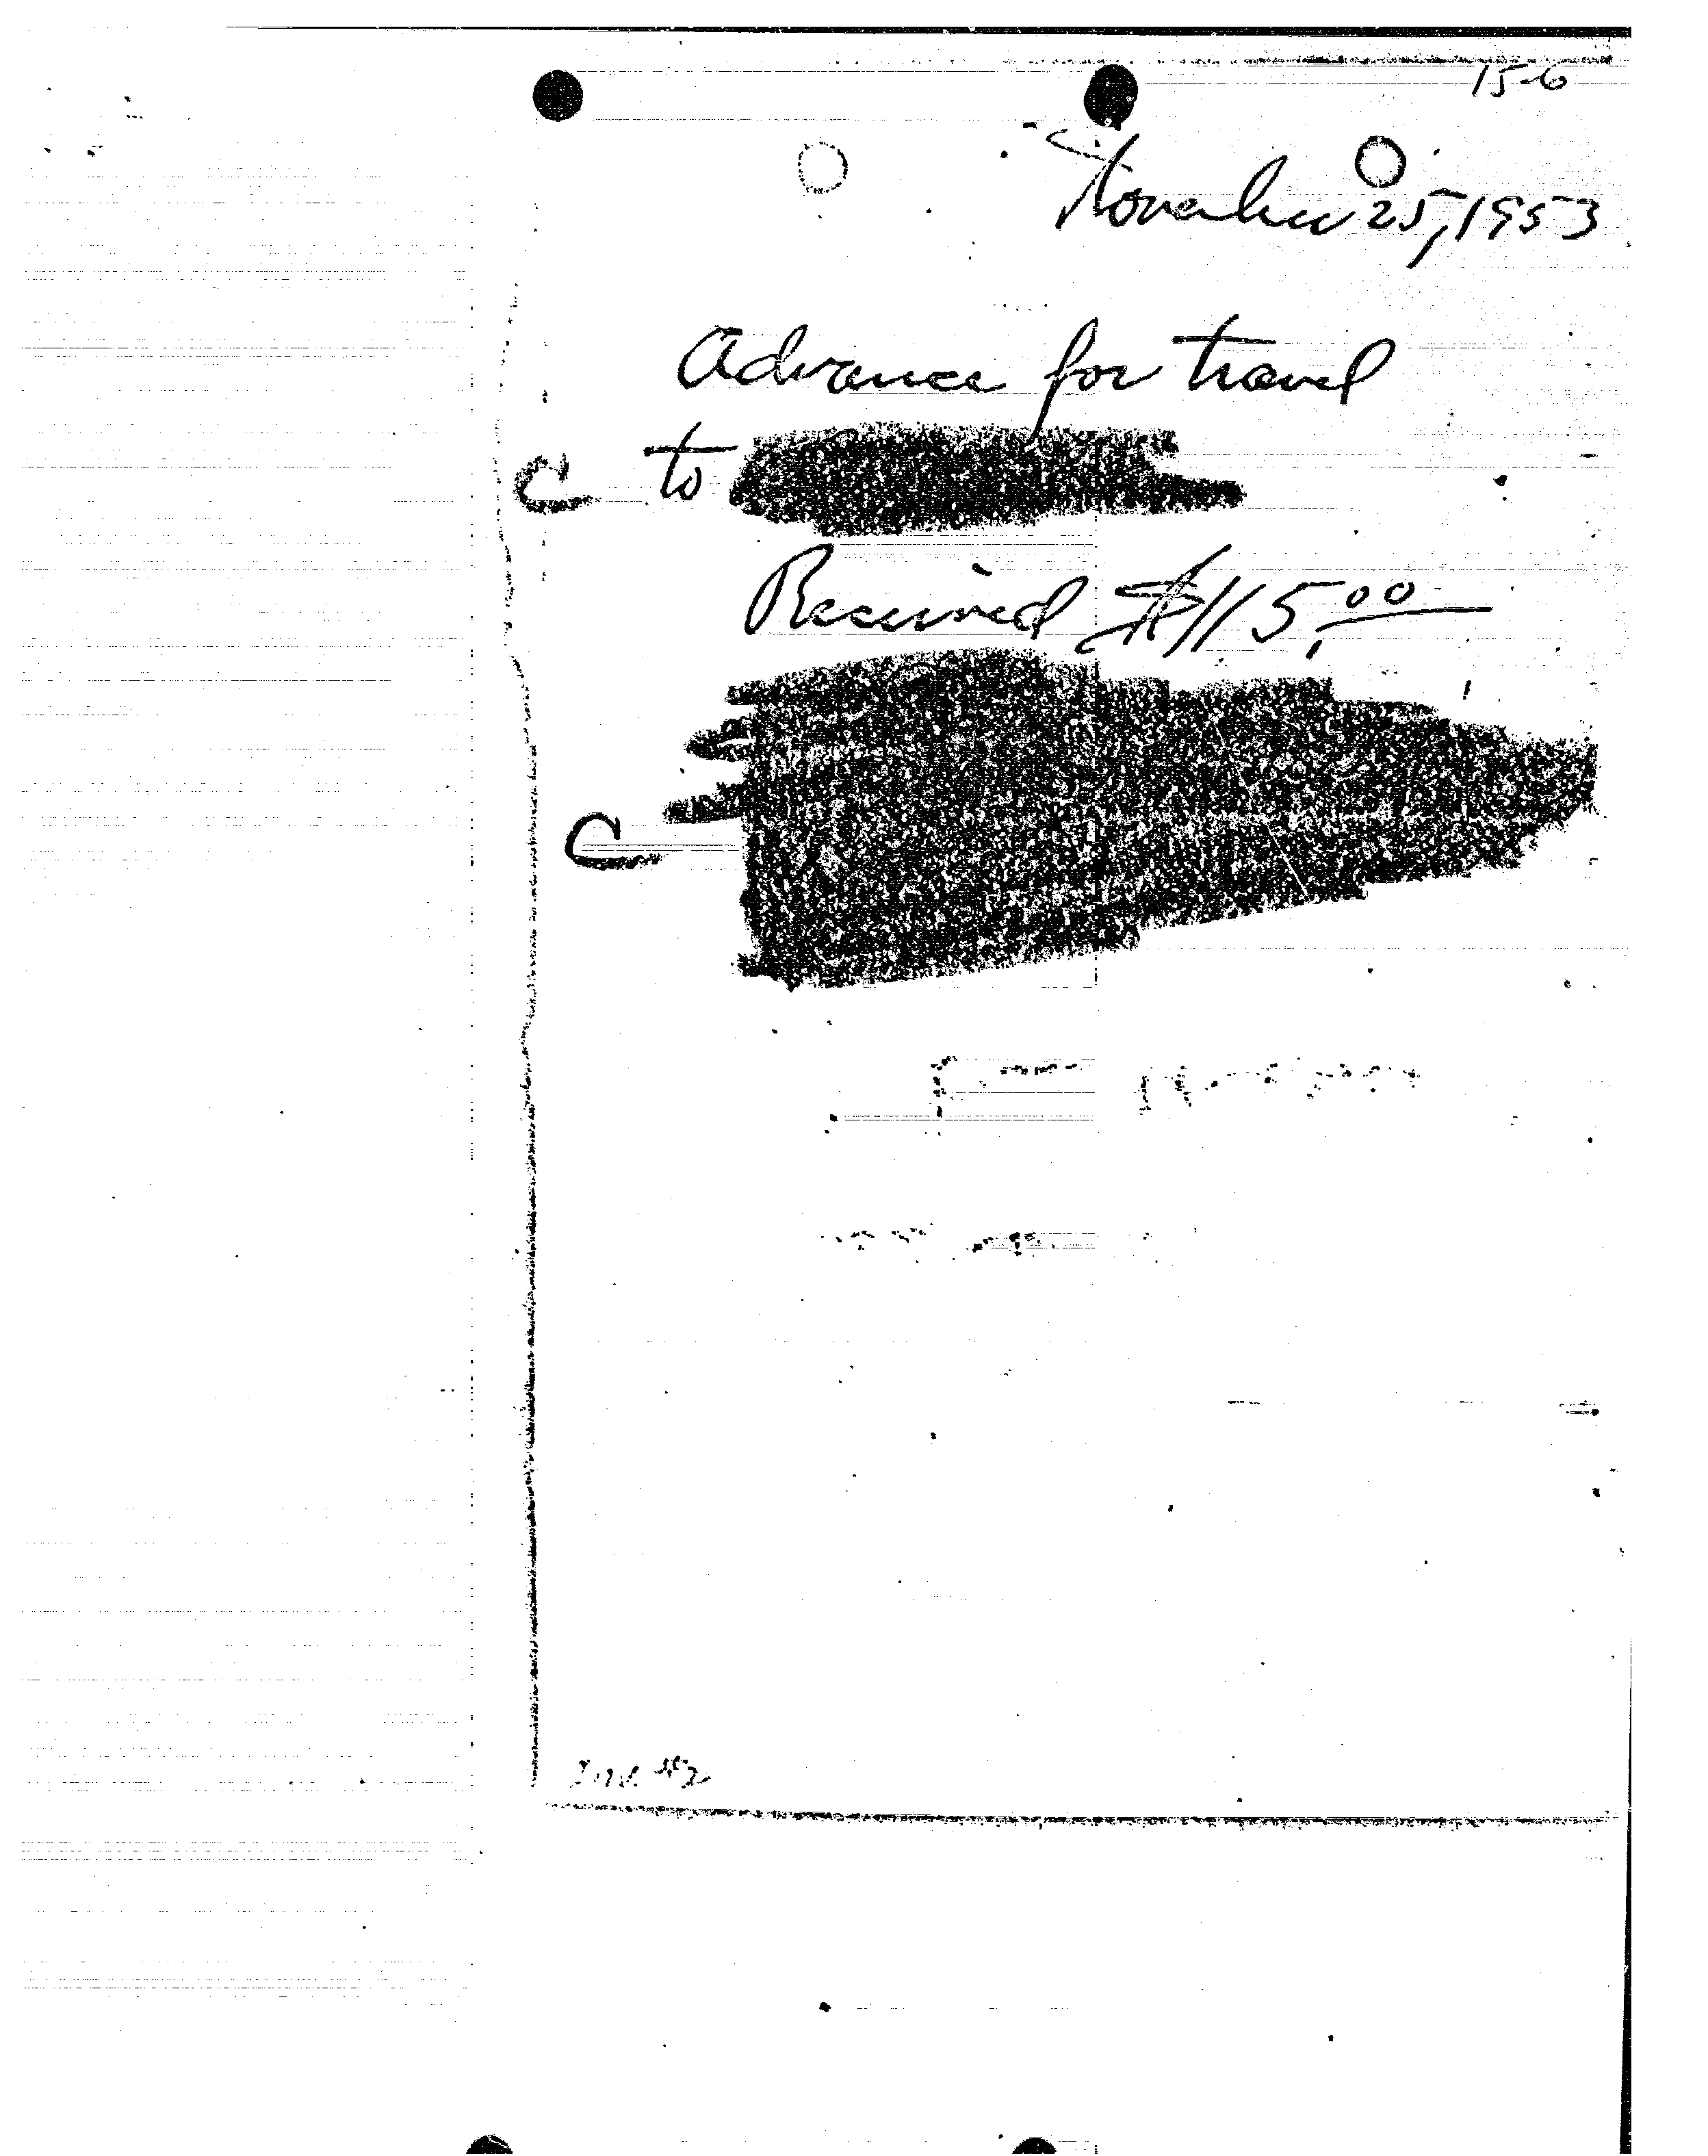 15-6
November 25, 1953
Advance for travel
C to
Received $115.00
C
Inv. #2